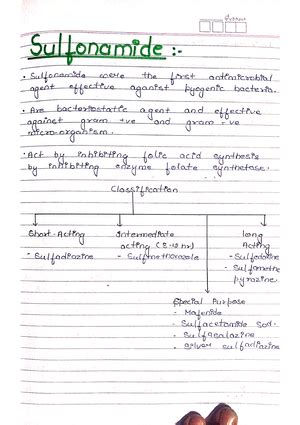 Sulfonamide :-
• Sulfonamide were the first antimicrobial
agent effective against pyogenic bacteria.
• Are bacteriostatic agent and effective
against gram +ve and gram -ve
microorganism.
• Act by inhibiting folic acid synthesis
by inhibiting enzyme folate synthetase.
Classification
Short-Acting
- Sulfadiazine
Intermediate
acting (8-12 hr)
- Sulfamethoxazole
long
Acting
- Sulfadoxine
- Sulfametho
pyrazine.
Special Purpose
- Mafenide
- Sulfacetamide Sod.
- Sulfasalazine
- Silver sulfadiazine